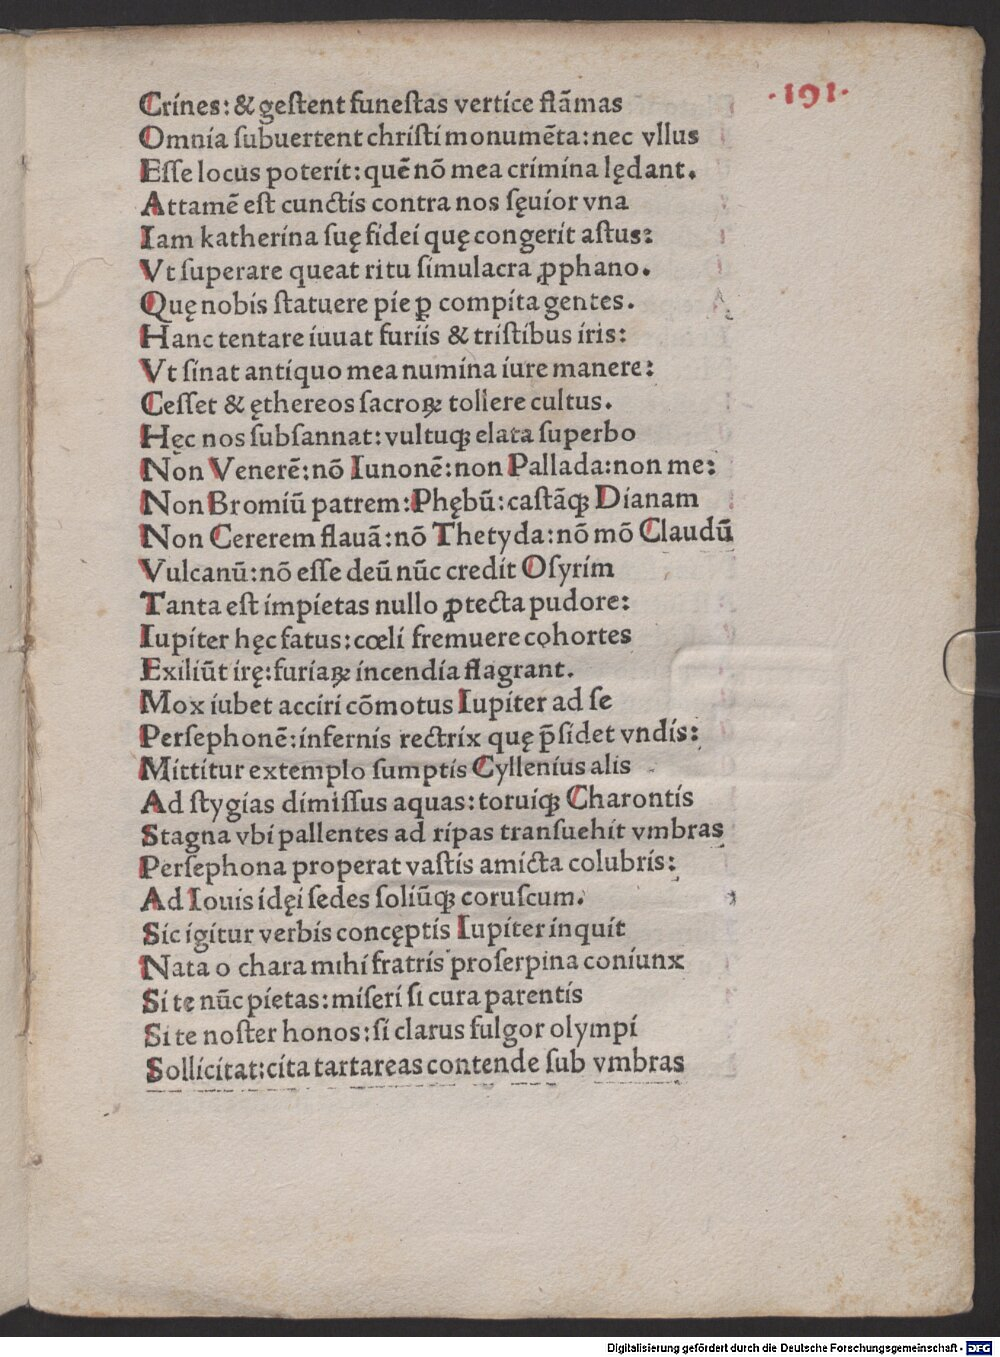 ·191·
Crines: & geſtent funeſtas vertice flãmas
Omnia ſubuertent chriſti monumẽta: nec vllus
Eſſe locus poterit: quẽ nõ mea crimina lędant.
Attamẽ eſt cunctis contra nos ſęuior vna
Iam katherina ſuę fidei quę congerit aſtus:
Vt ſuperare queat ritu ſimulacra ꝓphano.
Quę nobis ſtatuere pie ꝑ compita gentes.
Hanc tentare iuuat furiis & triſtibus iris:
Vt ſinat antiquo mea numina iure manere:
Ceſſet & ęthereos ſacroꝝ tollere cultus.
Hęc nos ſubſannat: vultuqꝫ elata ſuperbo
Non Venerẽ: nõ Iunonẽ: non Pallada: non me:
Non Bromiũ patrem: Phębũ: caſtãqꝫ Dianam
Non Cererem flauã: nõ Thetyda: nõ mõ Claudũ
Vulcanũ: nõ eſſe deũ nũc credit Oſyrim
Tanta eſt impietas nullo ꝓtecta pudore:
Iupiter hęc fatus: cœli fremuere cohortes
Exiliũt irę: furiaꝝ incendia flagrant.
Mox iubet acciri cõmotus Iupiter ad ſe
Perſephonẽ: infernis rectrix quę p̃ſidet vndis:
Mittitur extemplo ſumptis Cyllenius alis
Ad ſtygias dimiſſus aquas: toruiqꝫ Charontis
Stagna vbi pallentes ad ripas tranſuehit vmbras
Perſephona properat vaſtis amicta colubris:
Ad Iouis idęi ſedes ſoliũqꝫ coruſcum.
Sic igitur verbis concęptis Iupiter inquit
Nata o chara mihi fratris proſerpina coniunx
Si te nũc pietas: miſeri ſi cura parentis
Si te noſter honos: ſi clarus fulgor olympi
Sollicitat: cita tartareas contende ſub vmbras
Digitalisierung gefördert durch die Deutsche Forschungsgemeinschaft - DFG